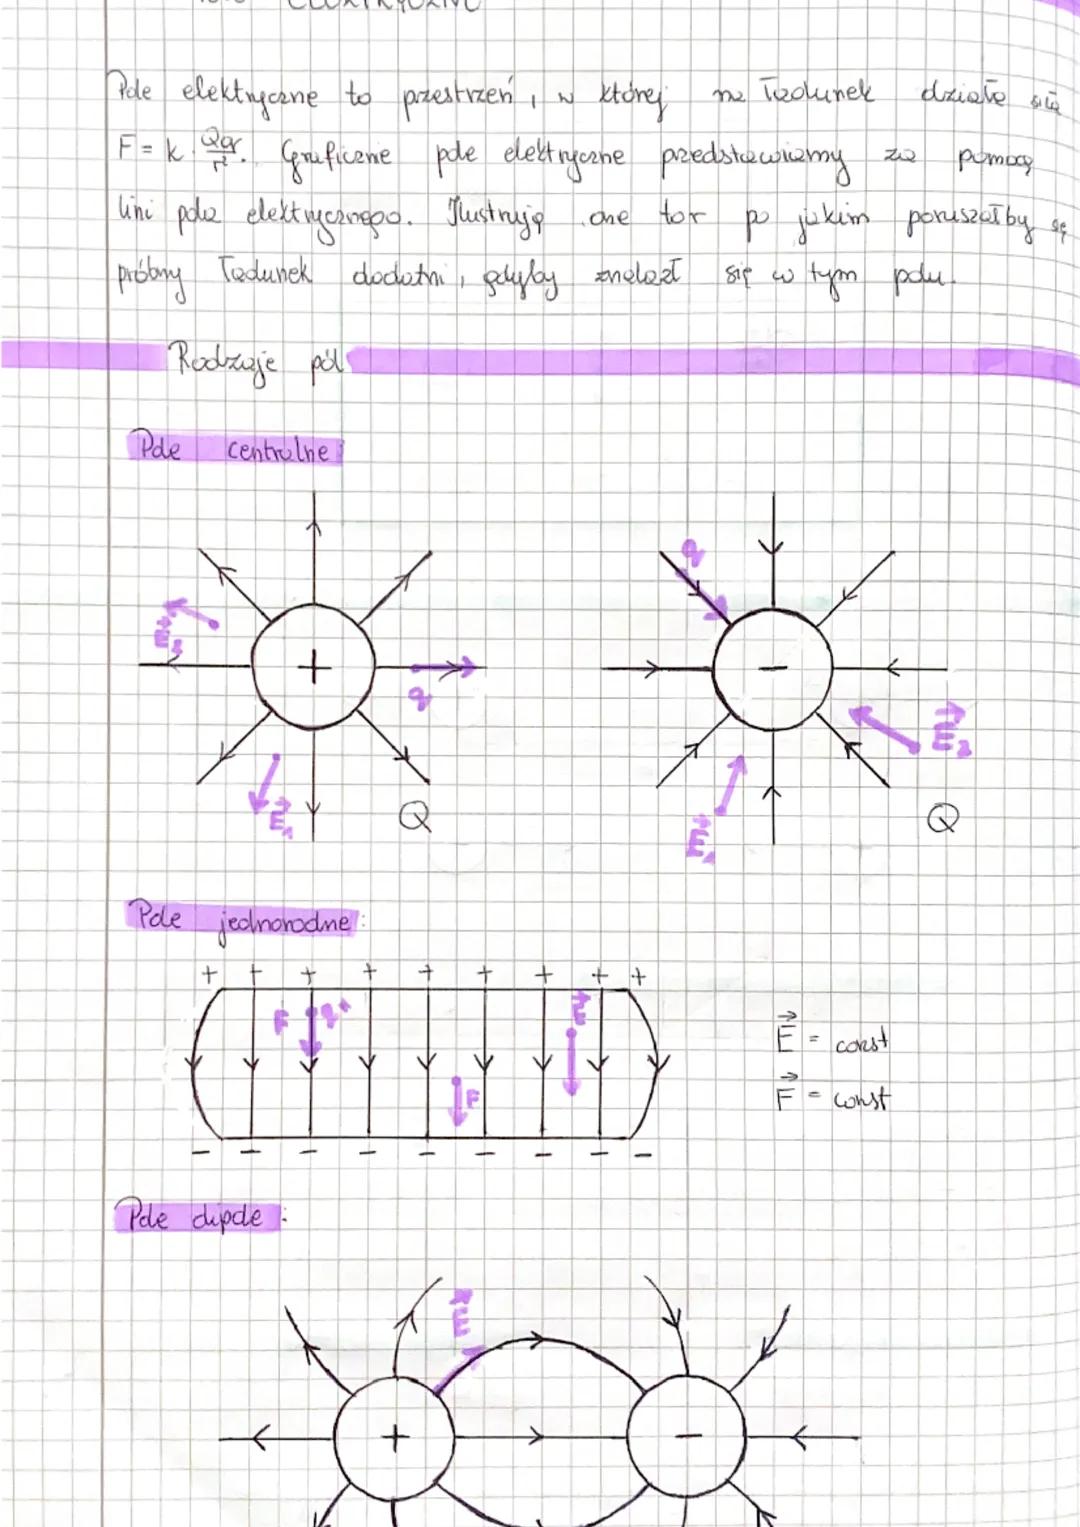 Pole elektryczne to przestrzeń, w której na ładunek działa siła
F = k · Qq/r². Graficzne pole elektryczne przedstawiamy za pomocą
lini pola elektrycznego. Ilustruję one tor po jakim poruszałby się
próbny ładunek dodatni, gdyby znalazł się w tym polu.
Rodzaje pól
Pole centralne:
+ q E₂ E₁ Q
q - E₂ E₁ Q
Pole jednorodne:
+ + + + + + + + +
F q⁺ E
E = const
F
F = const
- - - - - - - - -
Pole dipole:
E
+ -